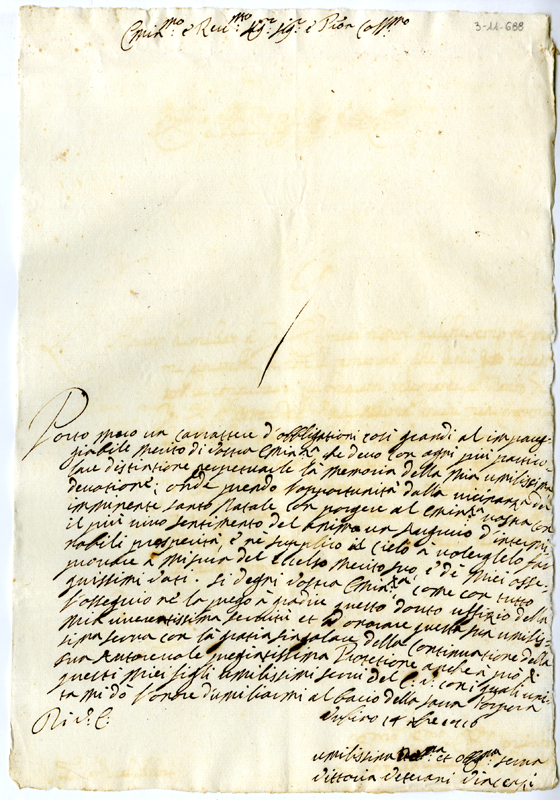 3-11-688
Emin.mo e Reu.mo Sig.r Sig.r e Pron Coll.mo
Porto meco un carattere d'obbligationi così grandi al impareg-
giabile merito di Vostra Emin.za che deuo con ogni più partico-
lare distintione perpetuarle la memoria della mia umilissima
deuotione; onde prendo l'opportunità dalla vicinanza del
imminente Santo Natale con porgere al Emin.za vostra con
il più viuo sentimento del animo un Augurio d'intermi-
nabili prosperità, e ne supplico il Cielo a volerglelo far
prouare a misura del eccelso merito suo, e de miei osse-
quissimi voti. Si degni Vostra Emin.za come con tutto
l'ossequio ne la prego à gradire questo douto uffizio della
mia riuerentissima seruitù et honorare questa sua umilis-
sima serua con la gratia singolare della continuatione della
sua Autoreuole pregiatissima Protetione anche a prò di
questi miei figli umilissimi serui del E. V. con i quali uni-
ta mi dò l'onore d'umiliarmi al bacio della sacra Porpora
Di V. E.
Urbino 14 xbre 1716
umilissima Deu.ma et Obblig.ma serua
Vittoria Veterani Vincenzi